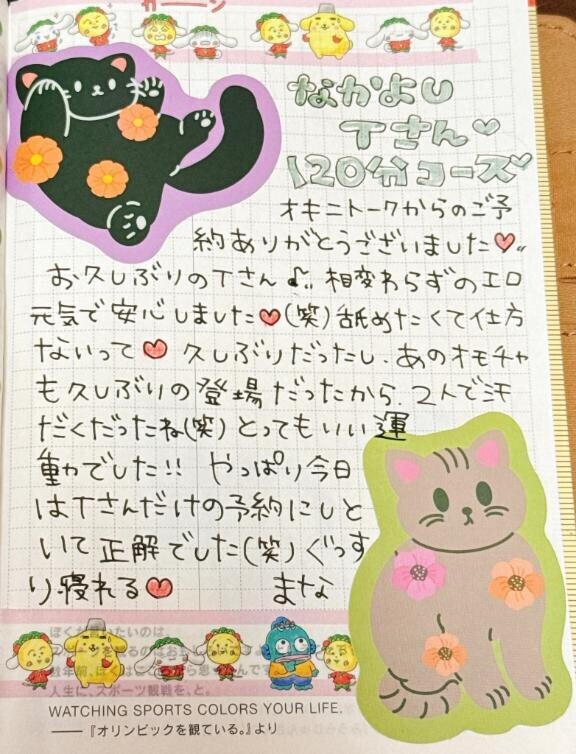 ガーン
なかよし
Tさん♡
120分コース♡
オキニトークからのご予
約ありがとうございました♥
お久しぶりのTさん♪ 相変わらずのエロ
元気で安心しました♥(笑) 舐めたくて仕方
ないって♥ 久しぶりだったし、あのオモチャ
も久しぶりの登場だったから、2人で汗
だくだったね(笑) とってもいい運
動でした!! やっぱり今日
はTさんだけの予約にしと
いて正解でした(笑) ぐっす
り寝れる♥ まな
人生に、スポーツ観戦を、と。
WATCHING SPORTS COLORS YOUR LIFE.
――『オリンピックを観ている。』より